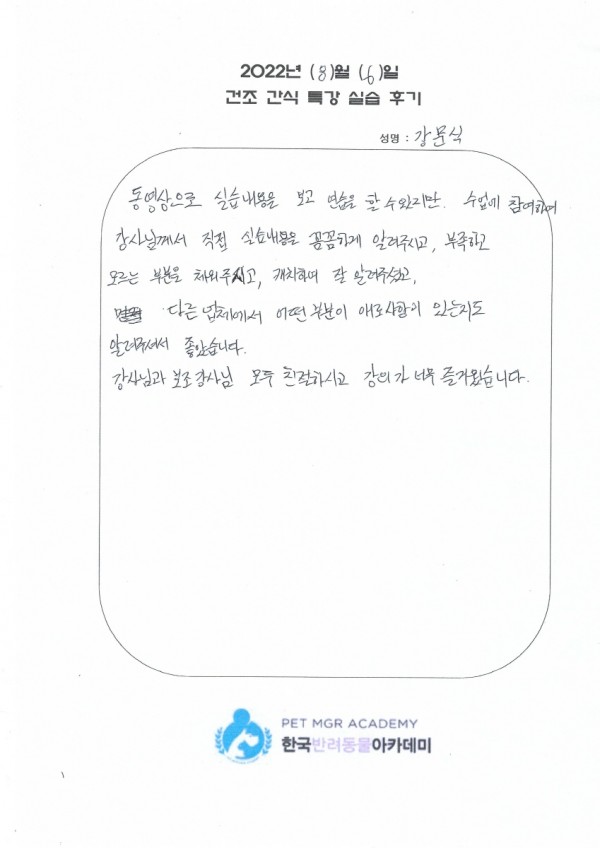 2022년 (8)월 (6)일
건조 간식 특강 실습 후기
성명 : 강문식
동영상으로 실습내용을 보고 연습을 할 수 있지만. 수업에 참여하여
강사님께서 직접 실습내용을 꼼꼼하게 알려주시고, 부족하고
모르는 부분을 채워주시고, 캐치하여 잘 알려주셨고,
다른 업체에서 어떤 부분이 애로사항이 있는지도
알려주셔서 좋았습니다.
강사님과 보조강사님 모두 친절하시고 강의가 너무 즐거웠습니다.
PET MGR ACADEMY
한국반려동물아카데미